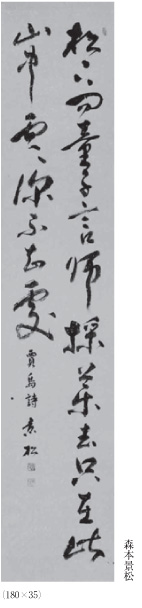 松下問童子言師採藥去只在此
山中雲深不知處
賈島詩 景松
森本景松
(180×35)